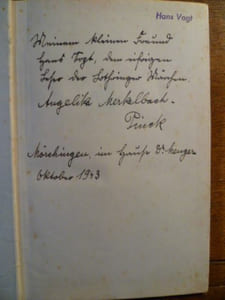 Hans Vogt
Meinem kleinen Freund
Hans Vogt, dem eifrigen
Leser der Lothringer Märchen.
Angelika Merkelbach-
Pinck
Mörchingen, im Hause Dr Menger
Oktober 1943